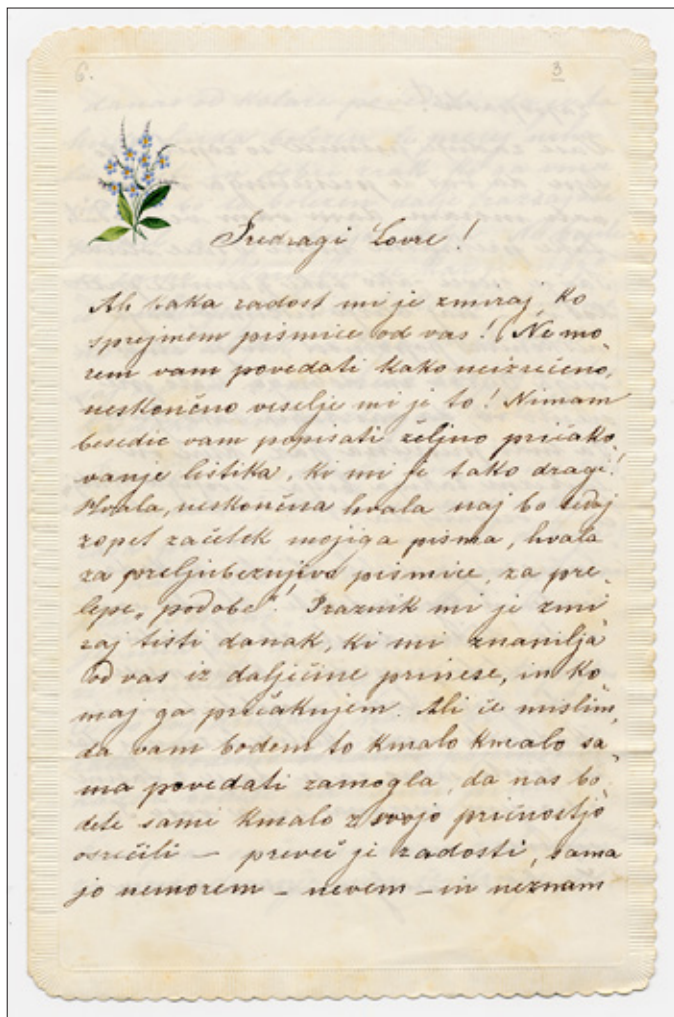 6. 3
Predragi Lovre!
Ah kaka radost mi je zmiraj, ko
sprejmem pismice od vas! Ne mo-
rem vam povedati kako neizrečeno,
neskončno veselje mi je to! Nimam
besedic vam popisati željno pričako-
vanje listika, ki mi je tako dragi!
Hvala, neskončna hvala naj bo sedaj
zopet začetek mojiga pisma, hvala
za preljubeznjivo pismice, za pre-
lepe „podobe"! Praznik mi je zmi
raj tisti danak, ki mi znanilja
od vas iz daljčine prinese, in ko
maj ga pričakujem. Ali če mislim,
da vam bodem to kmalo kmalo sa
ma povedati zamogla, da nas bo
dete sami kmalo z svojo pričnostjo
osrečili — preveč je radosti, sama
jo nemorem – nevem – in neznam